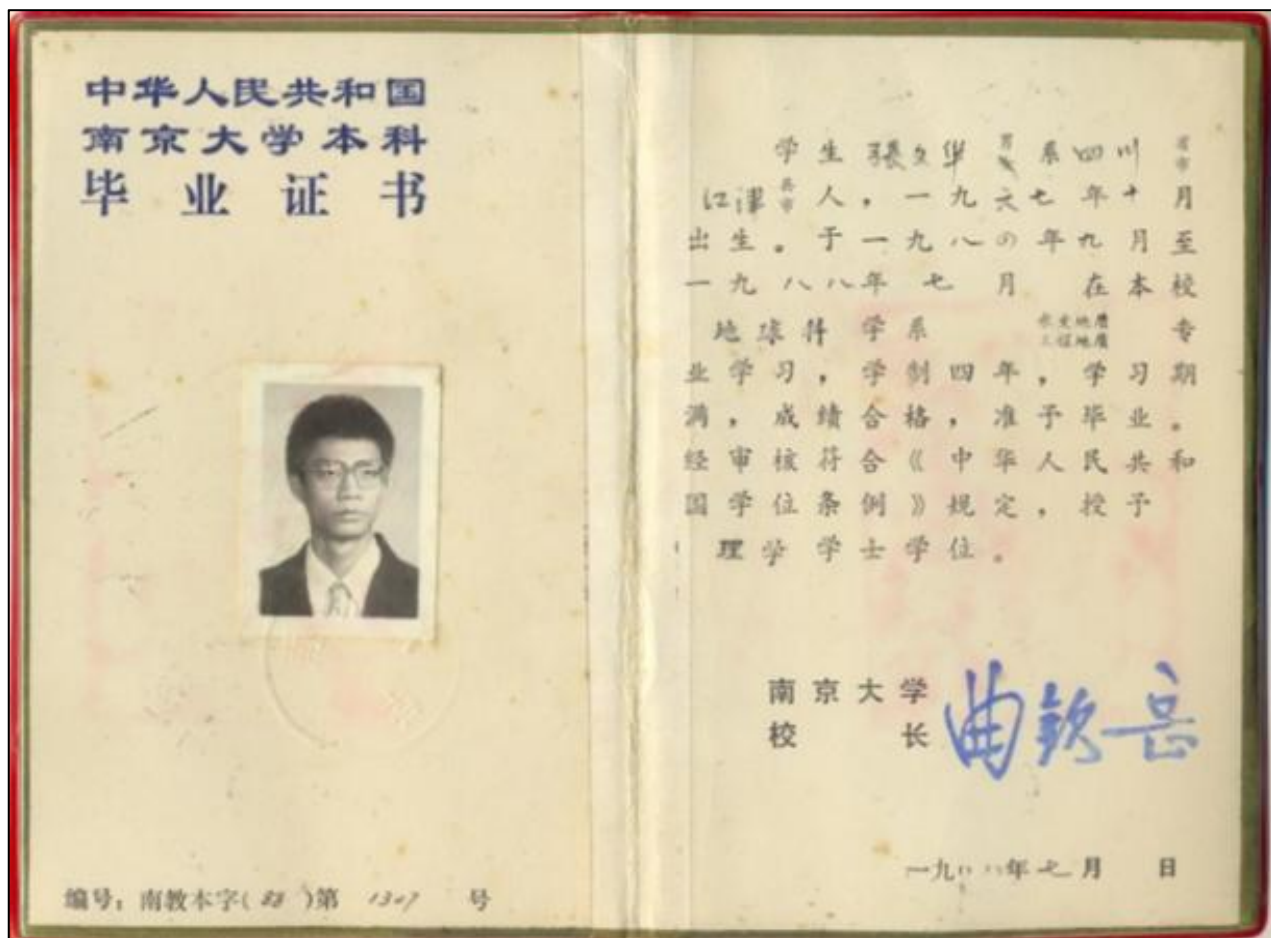 中华人民共和国
南京大学本科
毕业证书
编号：南教本字(88)第 1307 号
学生 張文华 男 系四川 省市
江津 县市 人，一九六七年十月
出生。于一九八四年九月至
一九八八年七月 在本校
地球科学系 水文地质工程地质 专
业学习，学制四年，学习期
满，成绩合格，准予毕业。
经审核符合《中华人民共和
国学位条例》规定，授予
理学学士学位。
南京大学
校 长 曲钦岳
一九八八年七月 日